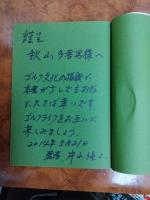 謹呈
秋山多喜男様へ
ゴルフ文化の
本書が少しでもお役
に立てば幸いです。
ゴルフライフをお互いに
楽しみましょう。
2014年8月21日
著者